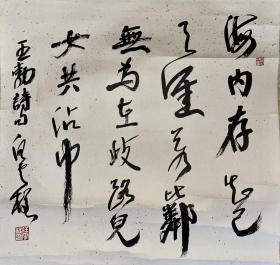 海内存知己
天涯若比鄰
無为在歧路兒
女共沾巾
王勃詩句